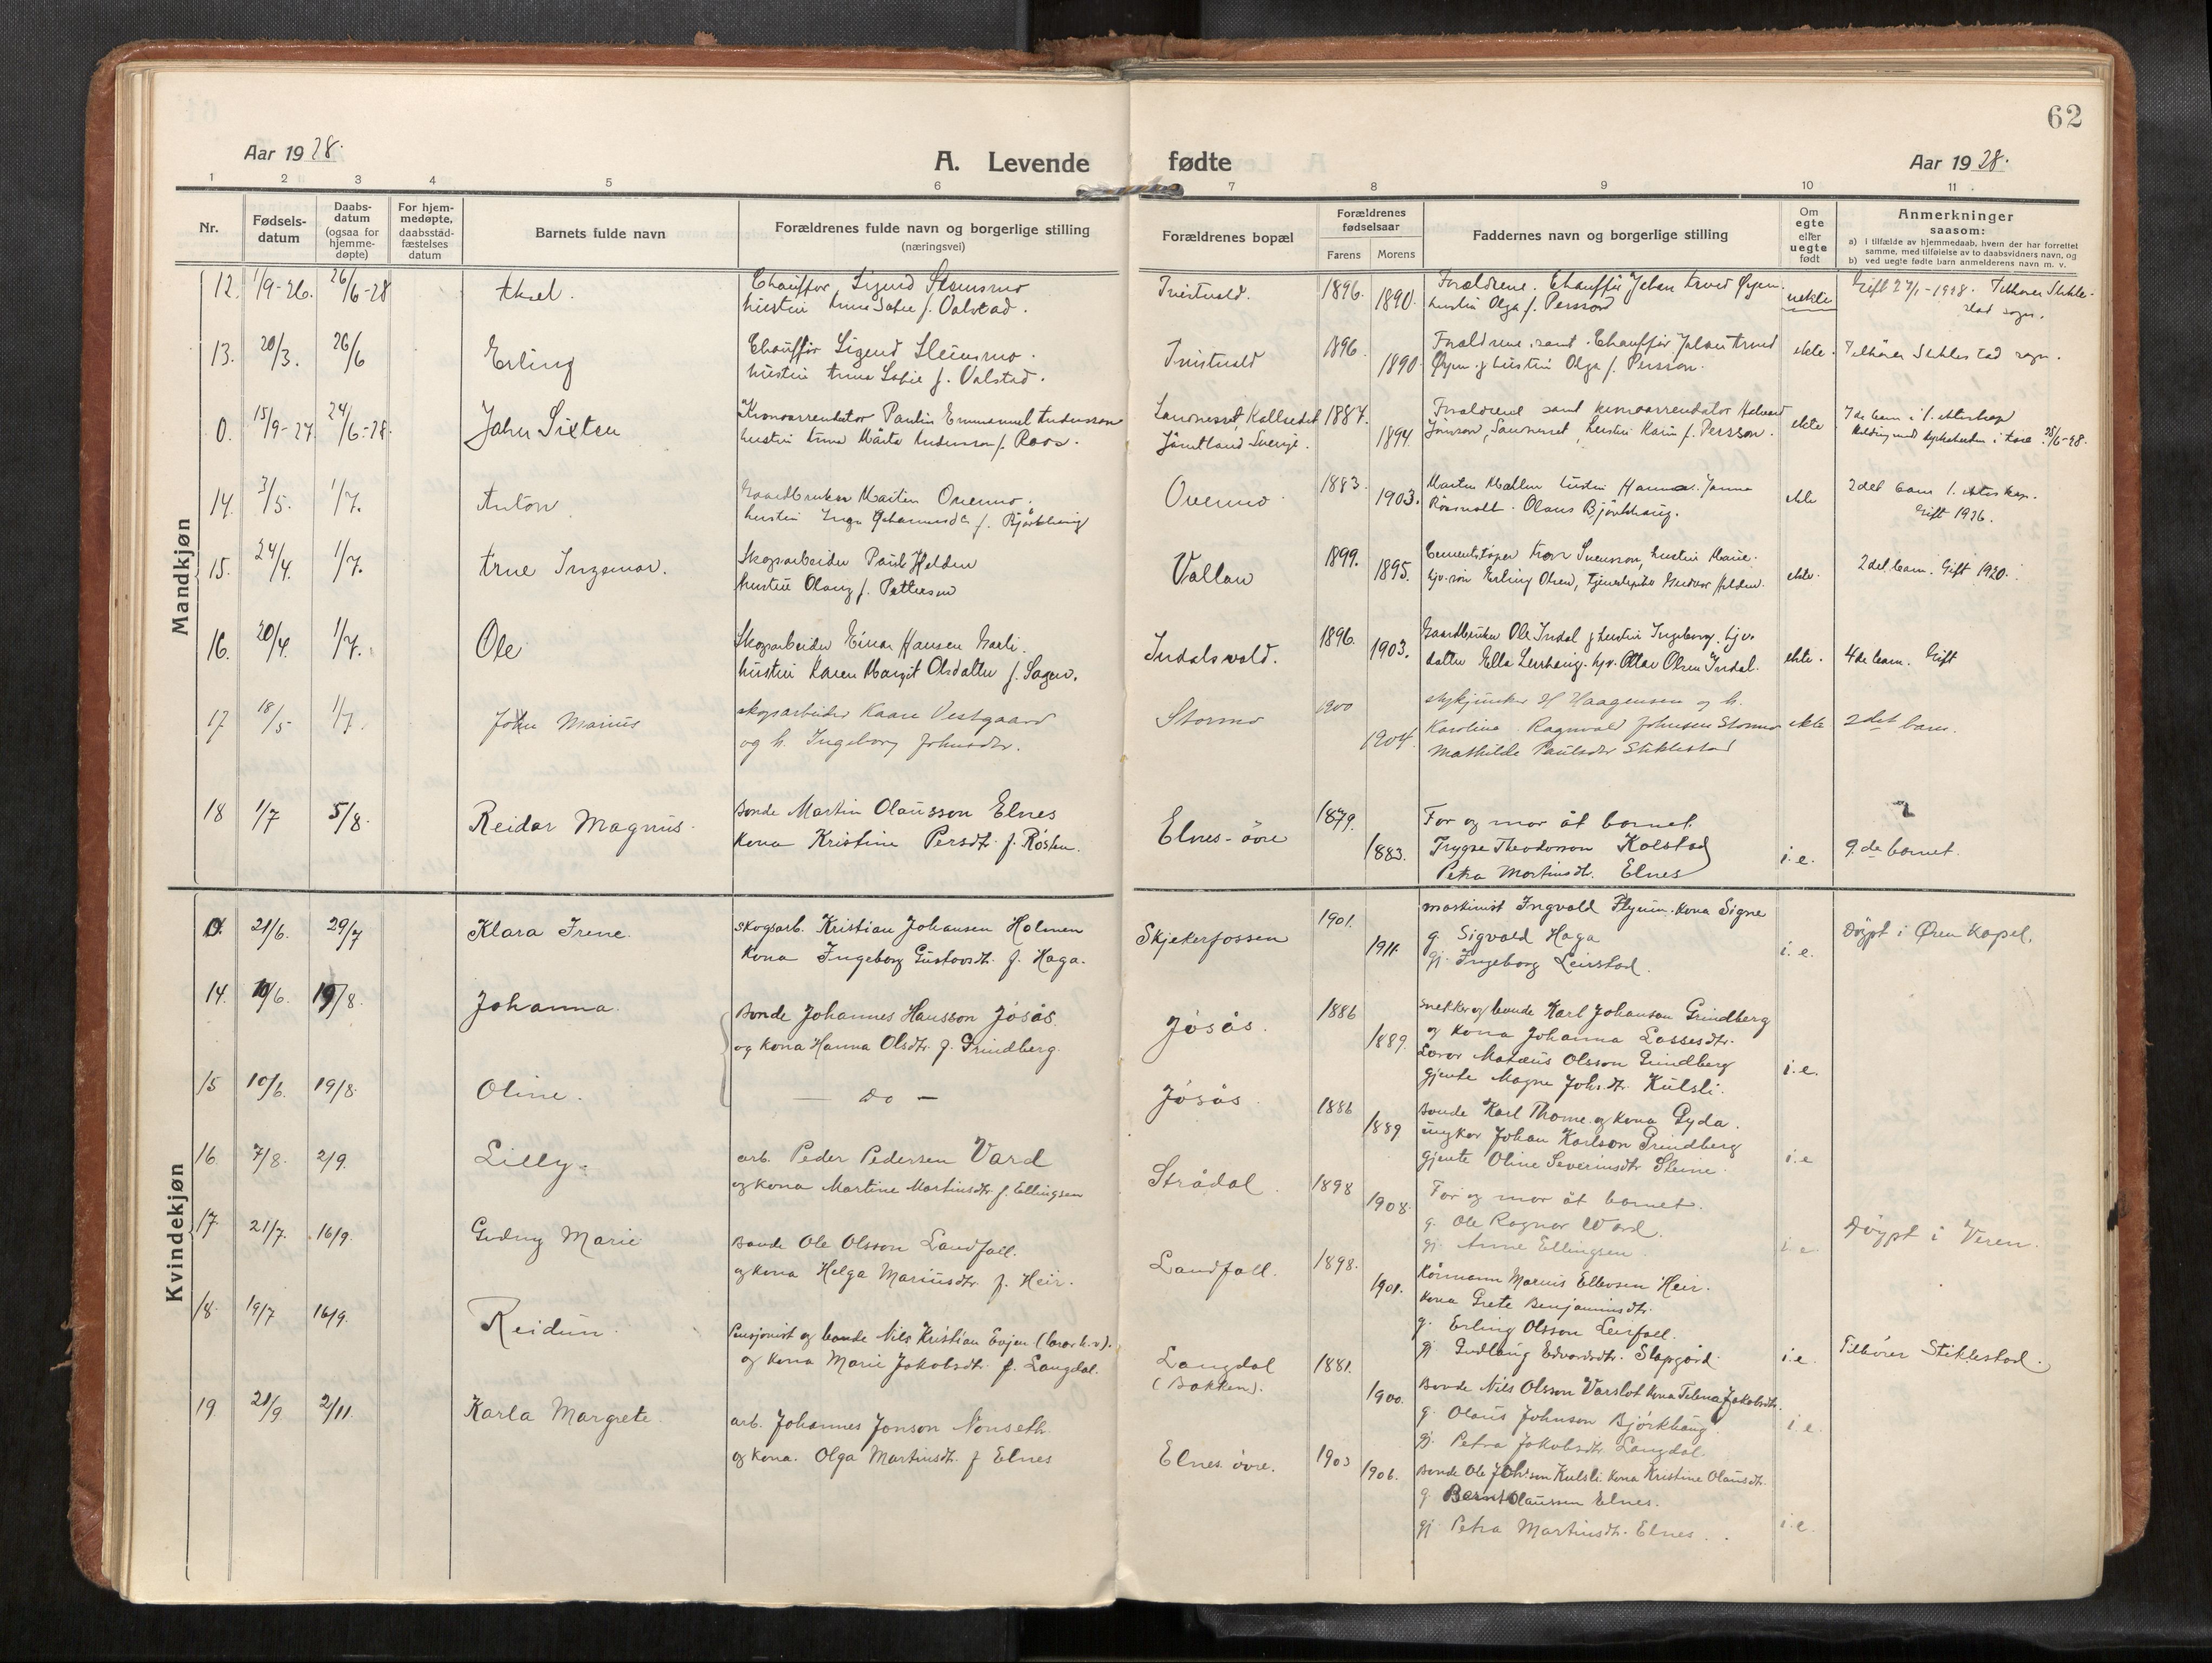 62
Aar 1928.
A. Levende fødte
Aar 1928.
1 2 3 4 5 6 7 8 9 10 11
Nr.
Fødsels-
datum
Daabs-
datum
(ogsaa for
hjemme-
døpte)
For hjem-
medøpte,
daabsstad-
fæstelses
datum
Barnets fulde navn
Forældrenes fulde navn og borgerlige stilling
(næringsvei)
Forældrenes bopæl
Forældrenes
fødselsaar
Farens Morens
Faddernes navn og borgerlige stilling
Om
egte
eller
uegte
født
Anmerkninger
saasom:
a) i tilfælde av hjemmedaab, hvem der har forrettet
samme, med tilføielse av to daabsvidners navn, og
b) ved uegte fødte barn anmelderens navn m. v.
Mandkjøn
12. 1/9-26. 26/6-28
Chauffør Sigurd
hustru Anna Sofie f.
1896. 1890.
Forældrene. Chauffør Johan Arvid Øyen.
hustru Olga f. Persson
uekte
Gift 27/1-1928. Tilhører Stikle-
stad sogn.
13. 20/3. 26/6 Erling
Chauffør Sigurd Steinsmo.
hustru Anna Sofie f. Valstad.
1896. 1890
Forældrene samt Chauffør Johan Arvid
Øyen & hustru Olga f. Persson.
ekte.
Tilhører Stiklestad sogn.
0. 15/9-27 24/6-28. John Sixten
Kronoarrendator Paulin Emmanuel Andersson
hustru Anna Märta Andersson f. Roos.
Jämtland Sverige.
1887. 1894.
Forældrene samt kronoarrendator
hustru Karin f. Persson.
ekte
7de barn i 1. ekteskap
25/6-28.
14. 3/5. 1/7. Anton
Gaardbruker Martin Overmo.
hustru Inga Johannesdtr f. Bjørkhaug
Overmo
1883. 1903.
Olaus Bjørkhaug.
ekte
2det barn 1. ekteskap.
Gift 1926.
15. 24/4. 1/7. Arne Ingemar.
Skogsarbeider Paul Helden
hustru Olaug f. Pettersen
Vallan
1899. 1895.
hustru Marie.
Erling Olsen,
ekte.
2det barn. Gift 1920.
16. 20/4. 1/7. Ole
Skogsarbeider Einar Hansen Garli.
hustru Karen Margit Olsdatter f. Sagen.
Indalsvald.
1896. 1903.
Gaardbruker Ole Indal & hustru Ingeborg. hjv.
datter Ella hjv. Ottar Olsen Indal.
ekte.
4de barn. Gift
17 18/5 1/7. John Marius
skogsarbeider Kaare Vestgaard
og h. Ingeborg Johnsdtr.
Stormo
1900 1904.
H Haagensen og h.
Karoline. Ragnvald Johnsen Stormo
Mathilde Paulsdtr Stiklestad
ekte
2det barn.
18 1/7 5/8. Reidar Magnus.
Bonde Martin Olausson Elnes
Kona Kristine Persdtr. f. Rösten.
Elnes-övre
1879. 1883.
Far og mor åt barnet.
Trygve Theodorson Kolstad
Petra Martinsdtr. Elnes
i. e.
9.de barnet.
Kvindekjøn
0. 21/6. 29/7 Klara Irene.
Skogsarb. Kristian Johansen Holmen
Kona Ingeborg Gustavsdtr. f. Haga.
Skjekerfossen
1901. 1911.
maskinist Ingvald Flyum. Kona Signe
g. Sigvald Haga
gj. Ingeborg Leirstad.
i. e.
Döypt i Øren Kapel.
14. 10/6. 19/8. Johanna.
Bonde Johannes Hansson Jösås
og kona Hanna Olsdtr. f. Grindberg.
Jösås.
1886 1889.
Snekker og bonde Karl Johansen Grindberg
og kona Johanna Lassesdtr.
Lærar Matæus Olsson Grindberg
gjente Magna Johs.dtr. Kulsli.
i. e.
15 10/6. 19/8. Oline.
— Do —
Jösås
1886 1889
Bonde Karl Thorne og kona Gyda.
ungkar Johan Karlson Grindberg
gjente Oline Severinsdtr Steine.
i. e
16 7/8. 2/9. Lilly.
arb. Peder Pedersen Vard
og kona Martine Martinsdtr. f. Ellingsen
Strådal.
1898 1908.
Far og mor åt barnet.
g. Ole Ragnar Ward.
gj. Anne Ellingsen
i. e.
Döypt i Veren.
17 21/7. 16/9. Gudny Marie
Bonde Ole Olsson Landfall.
og kona Helga Mariusdtr. f. Heir.
Landfall.
1898. 1901.
Kårmann Marius Ellevsen Heir.
Kona Grete Benjaminsdtr.
g. Erling Olsson Leirfall.
gj. Gudlaug Edvardsdtr. Slapgård.
i. e.
18 19/7 16/9. Reidun.
Pensjonist og bonde Nils Kristian Evjen
og kona Marie Jakobsdtr. f. Langdal.
Langdal
(Bakken).
1881. 1900.
Bonde Nils Olsson Varslot kona Telena Jakobsdtr.
g. Olaus Johnson Bjørkhaug
gj. Petra Jakobsdtr. Langdal.
i. e.
Tilhörer Stiklestad.
19. 21/9. 2/11. Karla Margrete.
arb. Johannes Jonson Nonseth.
og kona. Olga Martinsdtr. f Elnes
Elnes övre.
1903 1906.
Bonde Ole Johnson Kulsli kona Kristine Olausdtr.
g. Bernt Olaussen Elnes.
gj. Petra Martinsdtr. Elnes.
i. e.